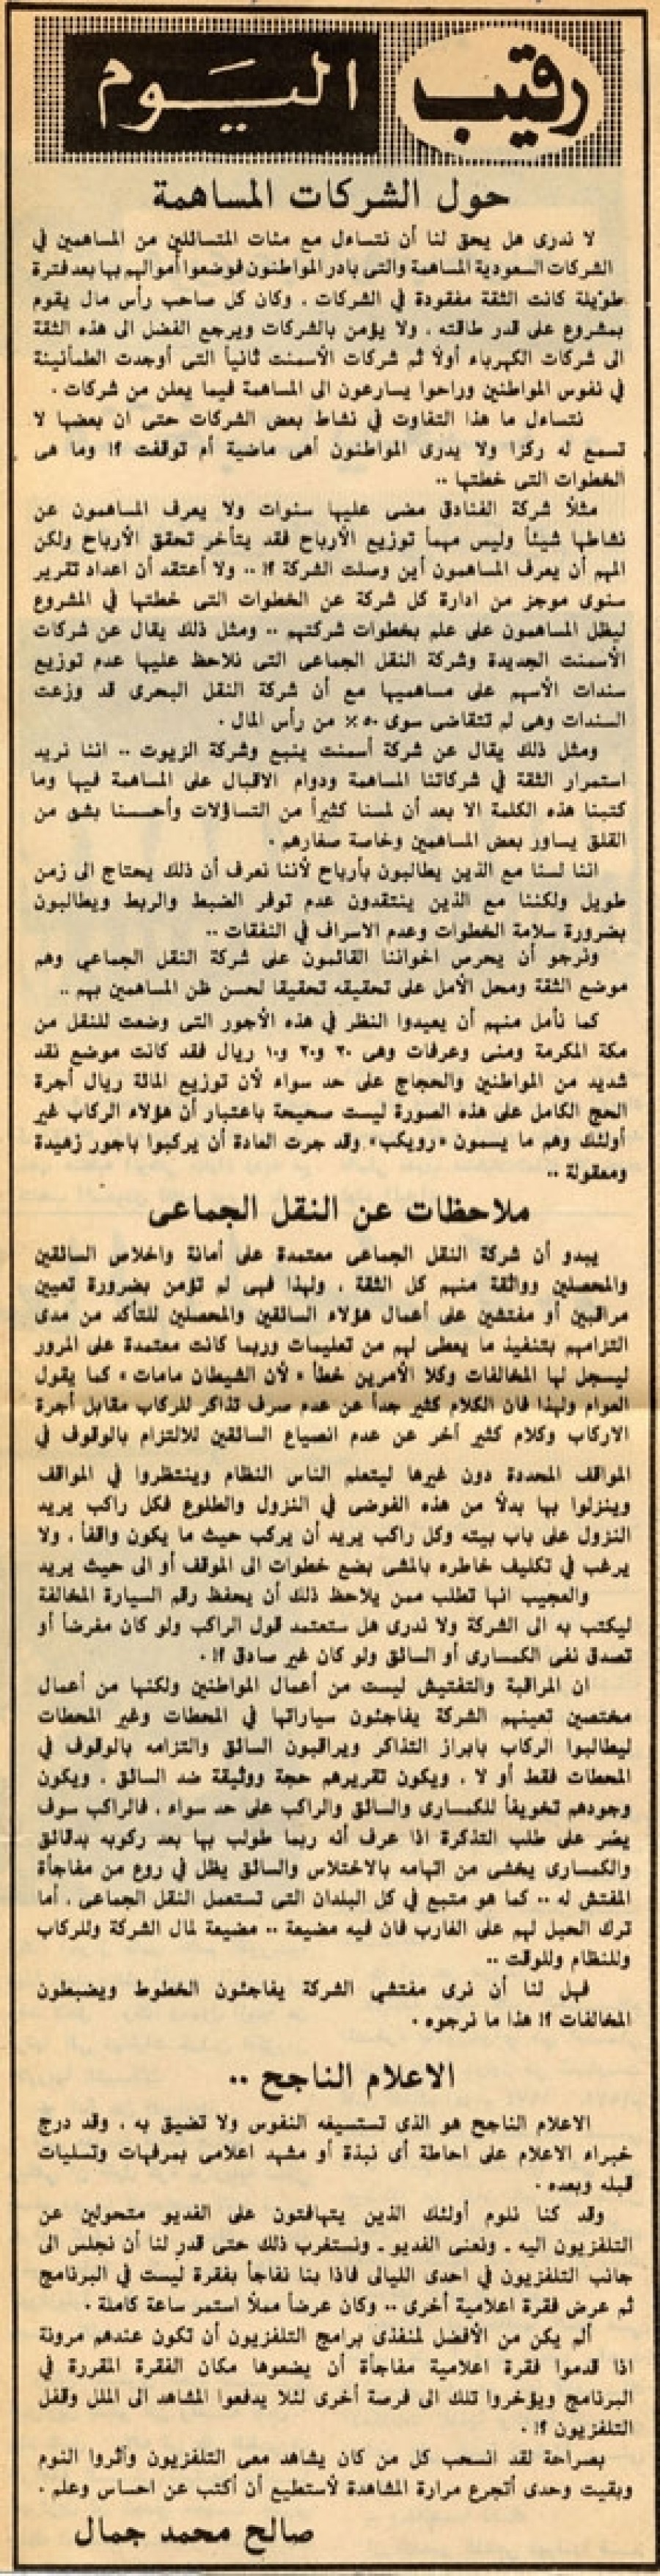 رقيب اليوم
حول الشركات المساهمة
لا ندرى هل يحق لنا أن نتساءل مع مئات المتسائلين من المساهمين في
الشركات السعودية المساهمة والتى بادر المواطنون فوضعوا أموالهم بها بعد فترة
طويلة كانت الثقة مفقودة في الشركات ، وكان كل صاحب رأس مال يقوم
بمشروع على قدر طاقته ، ولا يؤمن بالشركات ويرجع الفضل الى هذه الثقة
الى شركات الكهرباء أولاً ثم شركات الأسمنت ثانياً التى أوجدت الطمأنينة
في نفوس المواطنين وراحوا يسارعون الى المساهمة فيما يعلن من شركات .
نتساءل ما هذا التفاوت في نشاط بعض الشركات حتى ان بعضها لا
تسمع له ركزا ولا يدرى المواطنون أهى ماضية أم توقفت ؟! وما هى
الخطوات التى خطتها ..
مثلاً شركة الفنادق مضى عليها سنوات ولا يعرف المساهمون عن
نشاطها شيئاً وليس مهماً توزيع الأرباح فقد يتأخر تحقق الأرباح ولكن
المهم أن يعرف المساهمون أين وصلت الشركة ؟! .. ولا أعتقد أن اعداد تقرير
سنوى موجز من ادارة كل شركة عن الخطوات التى خطتها في المشروع
ليظل المساهمون على علم بخطوات شركتهم .. ومثل ذلك يقال عن شركات
الأسمنت الجديدة وشركة النقل الجماعى التى نلاحظ عليها عدم توزيع
سندات الأسهم على مساهميها مع أن شركة النقل البحرى قد وزعت
السندات وهى لم تتقاضى سوى ٥٠٪ من رأس المال .
ومثل ذلك يقال عن شركة أسمنت ينبع وشركة الزيوت .. اننا نريد
استمرار الثقة في شركاتنا المساهمة ودوام الاقبال على المساهمة فيها وما
كتبنا هذه الكلمة الا بعد أن لمسنا كثيراً من التساؤلات وأحسسنا بشئ من
القلق يساور بعض المساهمين وخاصة صغارهم .
اننا لسنا مع الذين يطالبون بأرباح لأننا نعرف أن ذلك يحتاج الى زمن
طويل ولكننا مع الذين ينتقدون عدم توفر الضبط والربط ويطالبون
بضرورة سلامة الخطوات وعدم الاسراف في النفقات ..
ونرجو أن يحرص اخواننا القائمون على شركة النقل الجماعي وهم
موضع الثقة ومحل الأمل على تحقيقه تحقيقا لحسن ظن المساهمين بهم ..
كما نأمل منهم أن يعيدوا النظر في هذه الأجور التى وضعت للنقل من
مكة المكرمة ومنى وعرفات وهى ٣٠ و٢٠ و١٠ ريال فقد كانت موضع نقد
شديد من المواطنين والحجاج على حد سواء لأن توزيع المائة ريال أجرة
الحج الكامل على هذه الصورة ليست صحيحة باعتبار أن هؤلاء الركاب غير
أولئك وهم ما يسمون «رويكب» وقد جرت العادة أن يركبوا باجور زهيدة
ومعقولة ..
ملاحظات عن النقل الجماعى
يبدو أن شركة النقل الجماعى معتمدة على أمانة واخلاص السائقين
والمحصلين وواثقة منهم كل الثقة ، ولهذا فهى لم تؤمن بضرورة تعيين
مراقبين أو مفتشين على أعمال هؤلاء السائقين والمحصلين للتأكد من مدى
التزامهم بتنفيذ ما يعطى لهم من تعليمات وربما كانت معتمدة على المرور
ليسجل لها المخالفات وكلا الأمرين خطأ « لأن الشيطان مامات » كما يقول
العوام ولهذا فان الكلام كثير جداً عن عدم صرف تذاكر للركاب مقابل أجرة
الاركاب وكلام كثير أخر عن عدم انصياع السائقين للالتزام بالوقوف في
المواقف المحددة دون غيرها ليتعلم الناس النظام وينتظروا في المواقف
وينزلوا بها بدلاً من هذه الفوضى في النزول والطلوع فكل راكب يريد
النزول على باب بيته وكل راكب يريد أن يركب حيث ما يكون واقفاً ، ولا
يرغب في تكليف خاطره بالمشى بضع خطوات الى الموقف أو الى حيث يريد
والعجيب انها تطلب ممن يلاحظ ذلك أن يحفظ رقم السيارة المخالفة
ليكتب به الى الشركة ولا ندرى هل ستعتمد قول الراكب ولو كان مغرضاً أو
تصدق نفى الكمسارى أو السائق ولو كان غير صادق ؟! .
ان المراقبة والتفتيش ليست من أعمال المواطنين ولكنها من أعمال
مختصين تعينهم الشركة يفاجئون سياراتها في المحطات وغير المحطات
ليطالبوا الركاب بابراز التذاكر ويراقبون السائق والتزامه بالوقوف في
المحطات فقط أو لا ، ويكون تقريرهم حجة ووثيقة ضد السائق ، ويكون
وجودهم تخويفاً للكمسارى والسائق والراكب على حد سواء ، فالراكب سوف
يصر على طلب التذكرة اذا عرف أنه ربما طولب بها بعد ركوبه بدقائق
والكمسارى يخشى من اتهامه بالاختلاس والسائق يظل في روع من مفاجأة
المفتش له .. كما هو متبع في كل البلدان التى تستعمل النقل الجماعى ، أما
ترك الحبل لهم على الغارب فان فيه مضيعة .. مضيعة لمال الشركة وللركاب
وللنظام وللوقت ..
فهل لنا أن نرى مفتشي الشركة يفاجئون الخطوط ويضبطون
المخالفات ؟! هذا ما نرجوه .
الاعلام الناجح ..
الاعلام الناجح هو الذى تستسيغه النفوس ولا تضيق به ، وقد درج
خبراء الاعلام على احاطة أى نبذة أو مشهد اعلامى بمرفهات وتسليات
قبله وبعده .
وقد كنا نلوم أولئك الذين يتهافتون على الفديو متحولين عن
التلفزيون اليه ـ ونعنى الفديو ـ ونستغرب ذلك حتى قدر لنا أن نجلس الى
جانب التلفزيون في احدى الليالى فاذا بنا نفاجأ بفقرة ليست في البرنامج
ثم عرض فقرة اعلامية أخرى .. وكان عرضاً مملاً استمر ساعة كاملة .
ألم يكن من الأفضل لمنفذى برامج التلفزيون أن تكون عندهم مرونة
اذا قدموا فقرة اعلامية مفاجأة أن يضعوها مكان الفقرة المقررة في
البرنامج ويؤخروا تلك الى فرصة أخرى لئلا يدفعوا المشاهد الى الملل وقفل
التلفزيون ؟! .
بصراحة لقد انسحب كل من كان يشاهد معى التلفزيون وآثروا النوم
وبقيت وحدى أتجرع مرارة المشاهدة لأستطيع أن أكتب عن احساس وعلم .
صالح محمد جمال